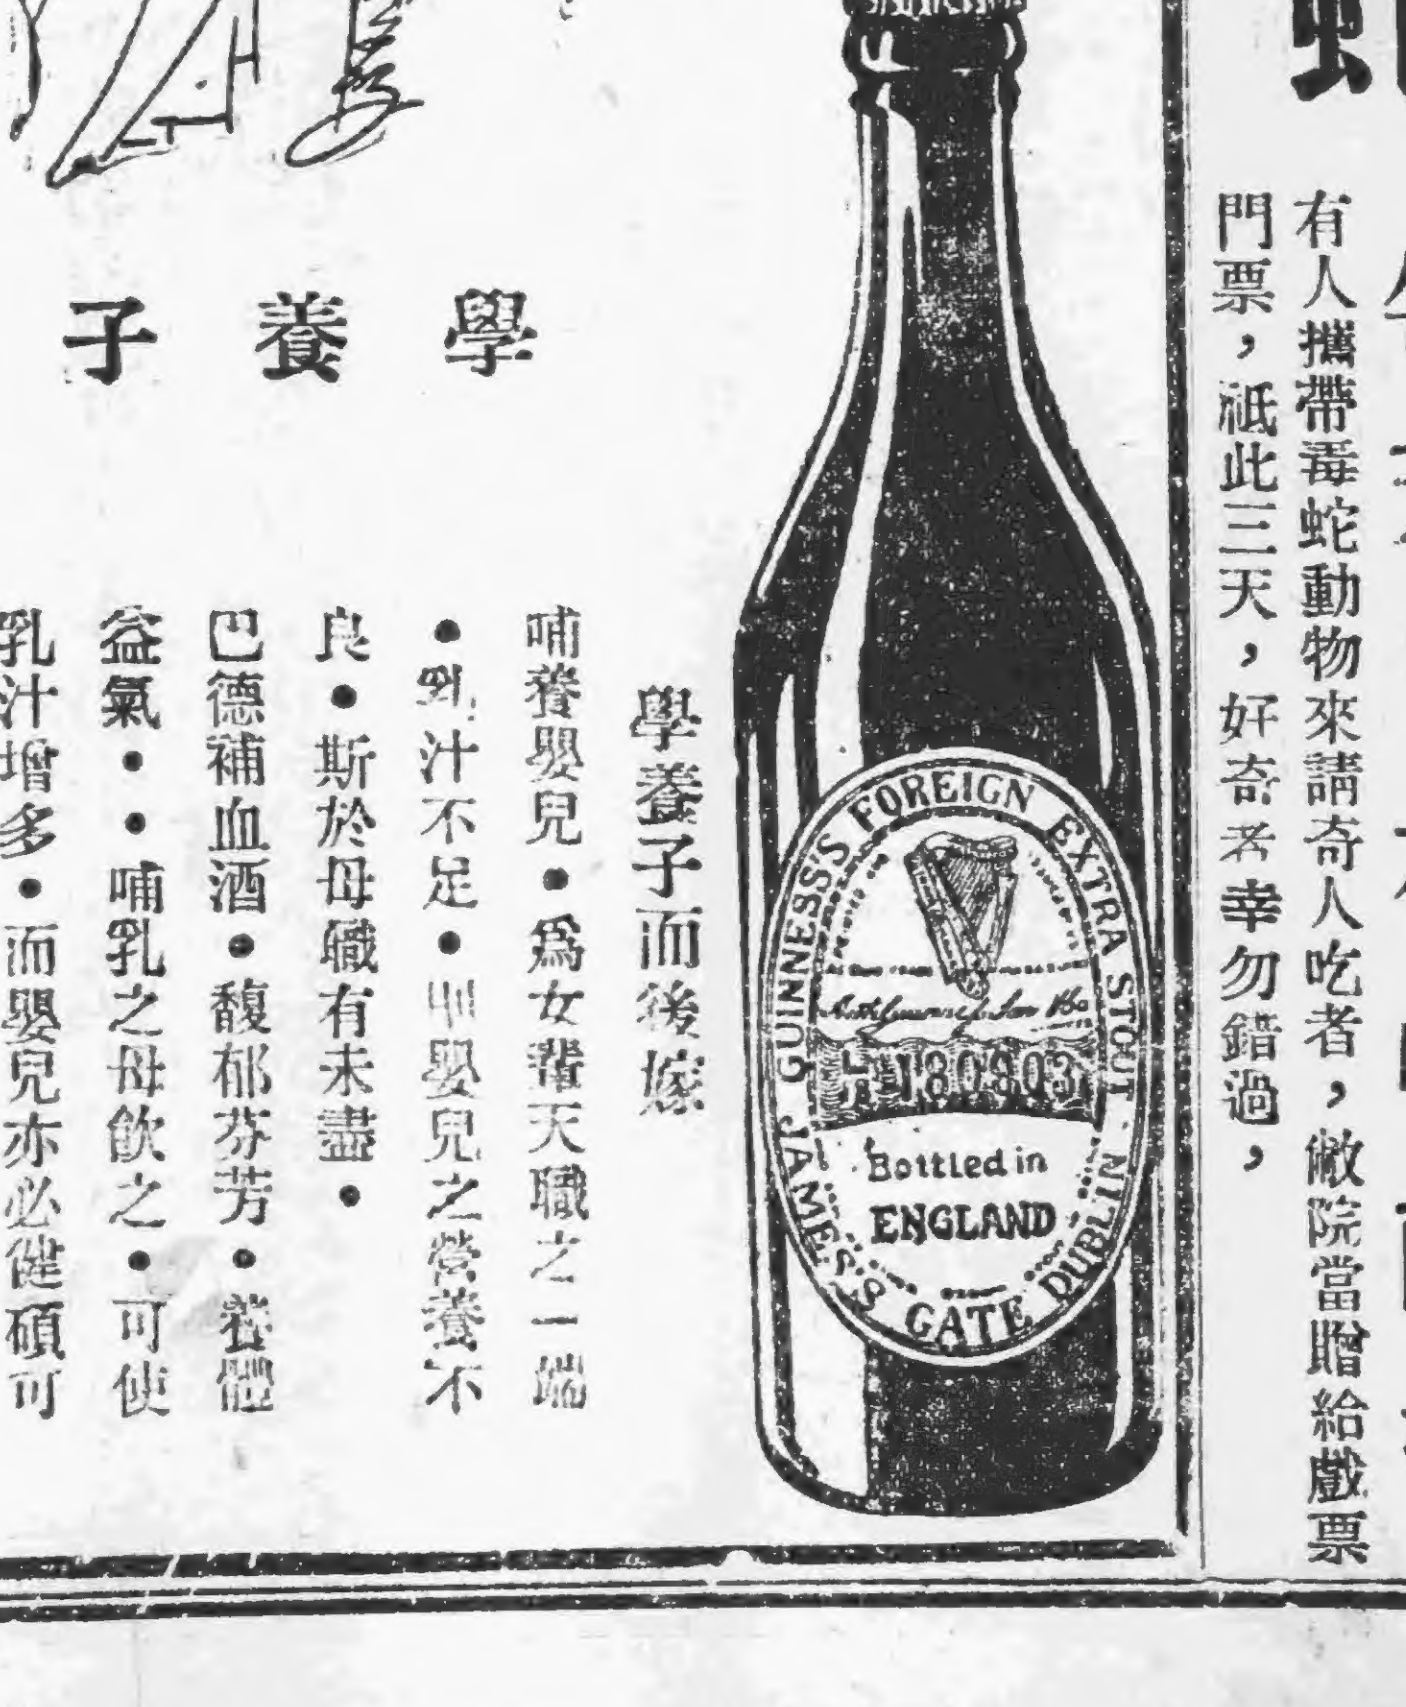 有人攜帶毒蛇動物來請奇人吃者，敝院當贈給戲票
門票，祗此三天，好奇者幸勿錯過，
GUINNESS'S FOREIGN EXTRA STOUT
JAMES'S GATE DUBLIN
180903
Bottled in
ENGLAND
學養子
學養子而後嫁
哺養嬰兒•為女輩天職之一端
•乳汁不足•則嬰兒之營養不
良•斯於母職有未盡•
巴德補血酒•馥郁芬芳•養體
益氣••哺乳之母飲之•可使
乳汁增多•而嬰兒亦必健碩可